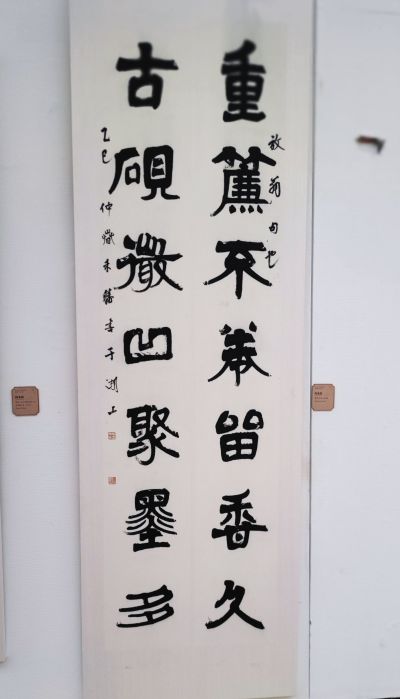 重簾不卷留香久
放翁句也
古硯微凹聚墨多
乙巳仲秋朱書于湖上